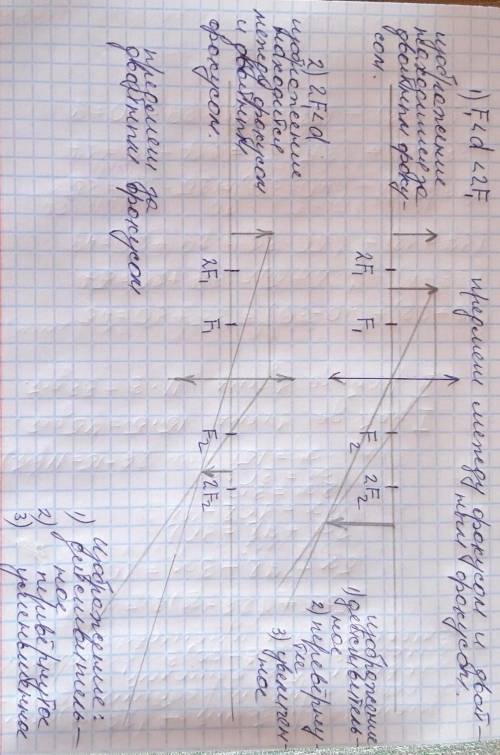 1) F₁<d<2F₁
предмет между фокусом и двой-
ным фокусом.
изображение
находится за
двойным фоку-
сом.
2F₁ F₁ F₂ 2F₂
изображение
1) действитель
ное
2) переверну
тое
3) увеличен
ное
2) 2F₁<d
изображение
находится
между фокусом
и двойным
фокусом.
2F₁ F₁ F₂ 2F₂
предмет за
двойным фокусом
изображение:
1) действитель-
ное
2) перевёрнутое
3) уменьшенное